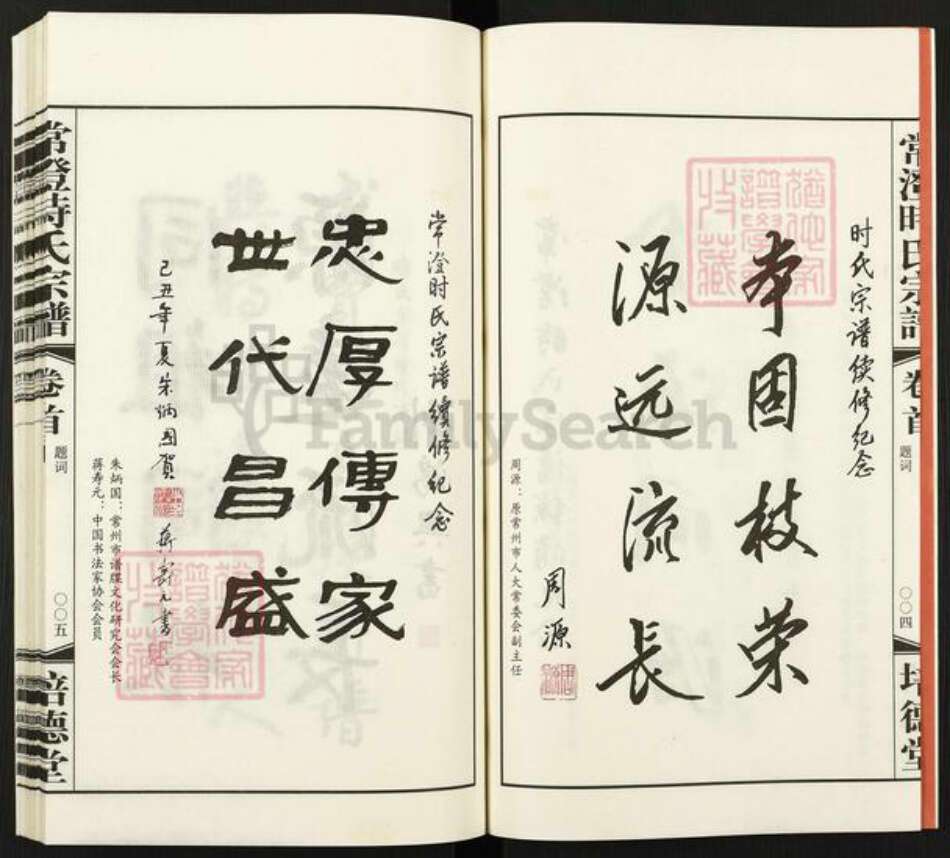 常澄时氏宗譜
卷首
题词
〇〇四
培德堂
时氏宗谱续修纪念
本固枝荣
源远流长
周源
周源：原常州市人大常委会副主任
常澄时氏宗谱續修纪念
忠厚傳家
世代昌盛
己丑年夏朱炳国贺
蒋寿元书
朱炳国：常州市谱牒文化研究会会长
蒋寿元：中国书法家协会会员
常澄時氏宗譜
卷首
题词
〇〇五
培德堂
FamilySearch